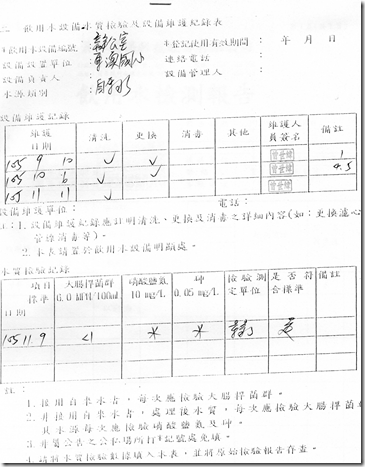 二、飲用水設備水質檢驗及設備維護紀錄表
飲用水設備編號：辦公室 *登記使用有效期間： 年 月 日
設備設置單位： 國小 連絡電話：
設備負責人： 設備管理人：
水源類別：自來水
設備維護記錄
維護日期 清洗 更換 消毒 其他 維護人員簽名 備註
105 9 10 ✓ ✓ 1
105 10 6 ✓ ✓ 4.5
105 11 11 ✓
設備維護單位： 電話：
註：1.設備維護紀錄應註明清洗、更換及消毒之詳細內容(如：更換濾心
管線消毒等)。
2.本表請置於飲用水設備明顯處。
水質檢驗記錄
項目 標準 日期 大腸桿菌群 6.0 MPN/100mL 硝酸鹽氮 10 mg/L 砷 0.05 mg/L 檢驗測定單位 是否符合標準 備註
105 11 9 <1 * * 是
註：
1.接用自來水者，每次應檢驗大腸桿菌群。
2.非接用自來水者，處理後水質，每次應檢驗大腸桿菌群
其水源每次應檢驗硝酸鹽氮及砷。
3.非屬公告之公私場所打*記號處免填。
4.請將水質檢驗數據填入本表，並將原始檢驗報告存查。